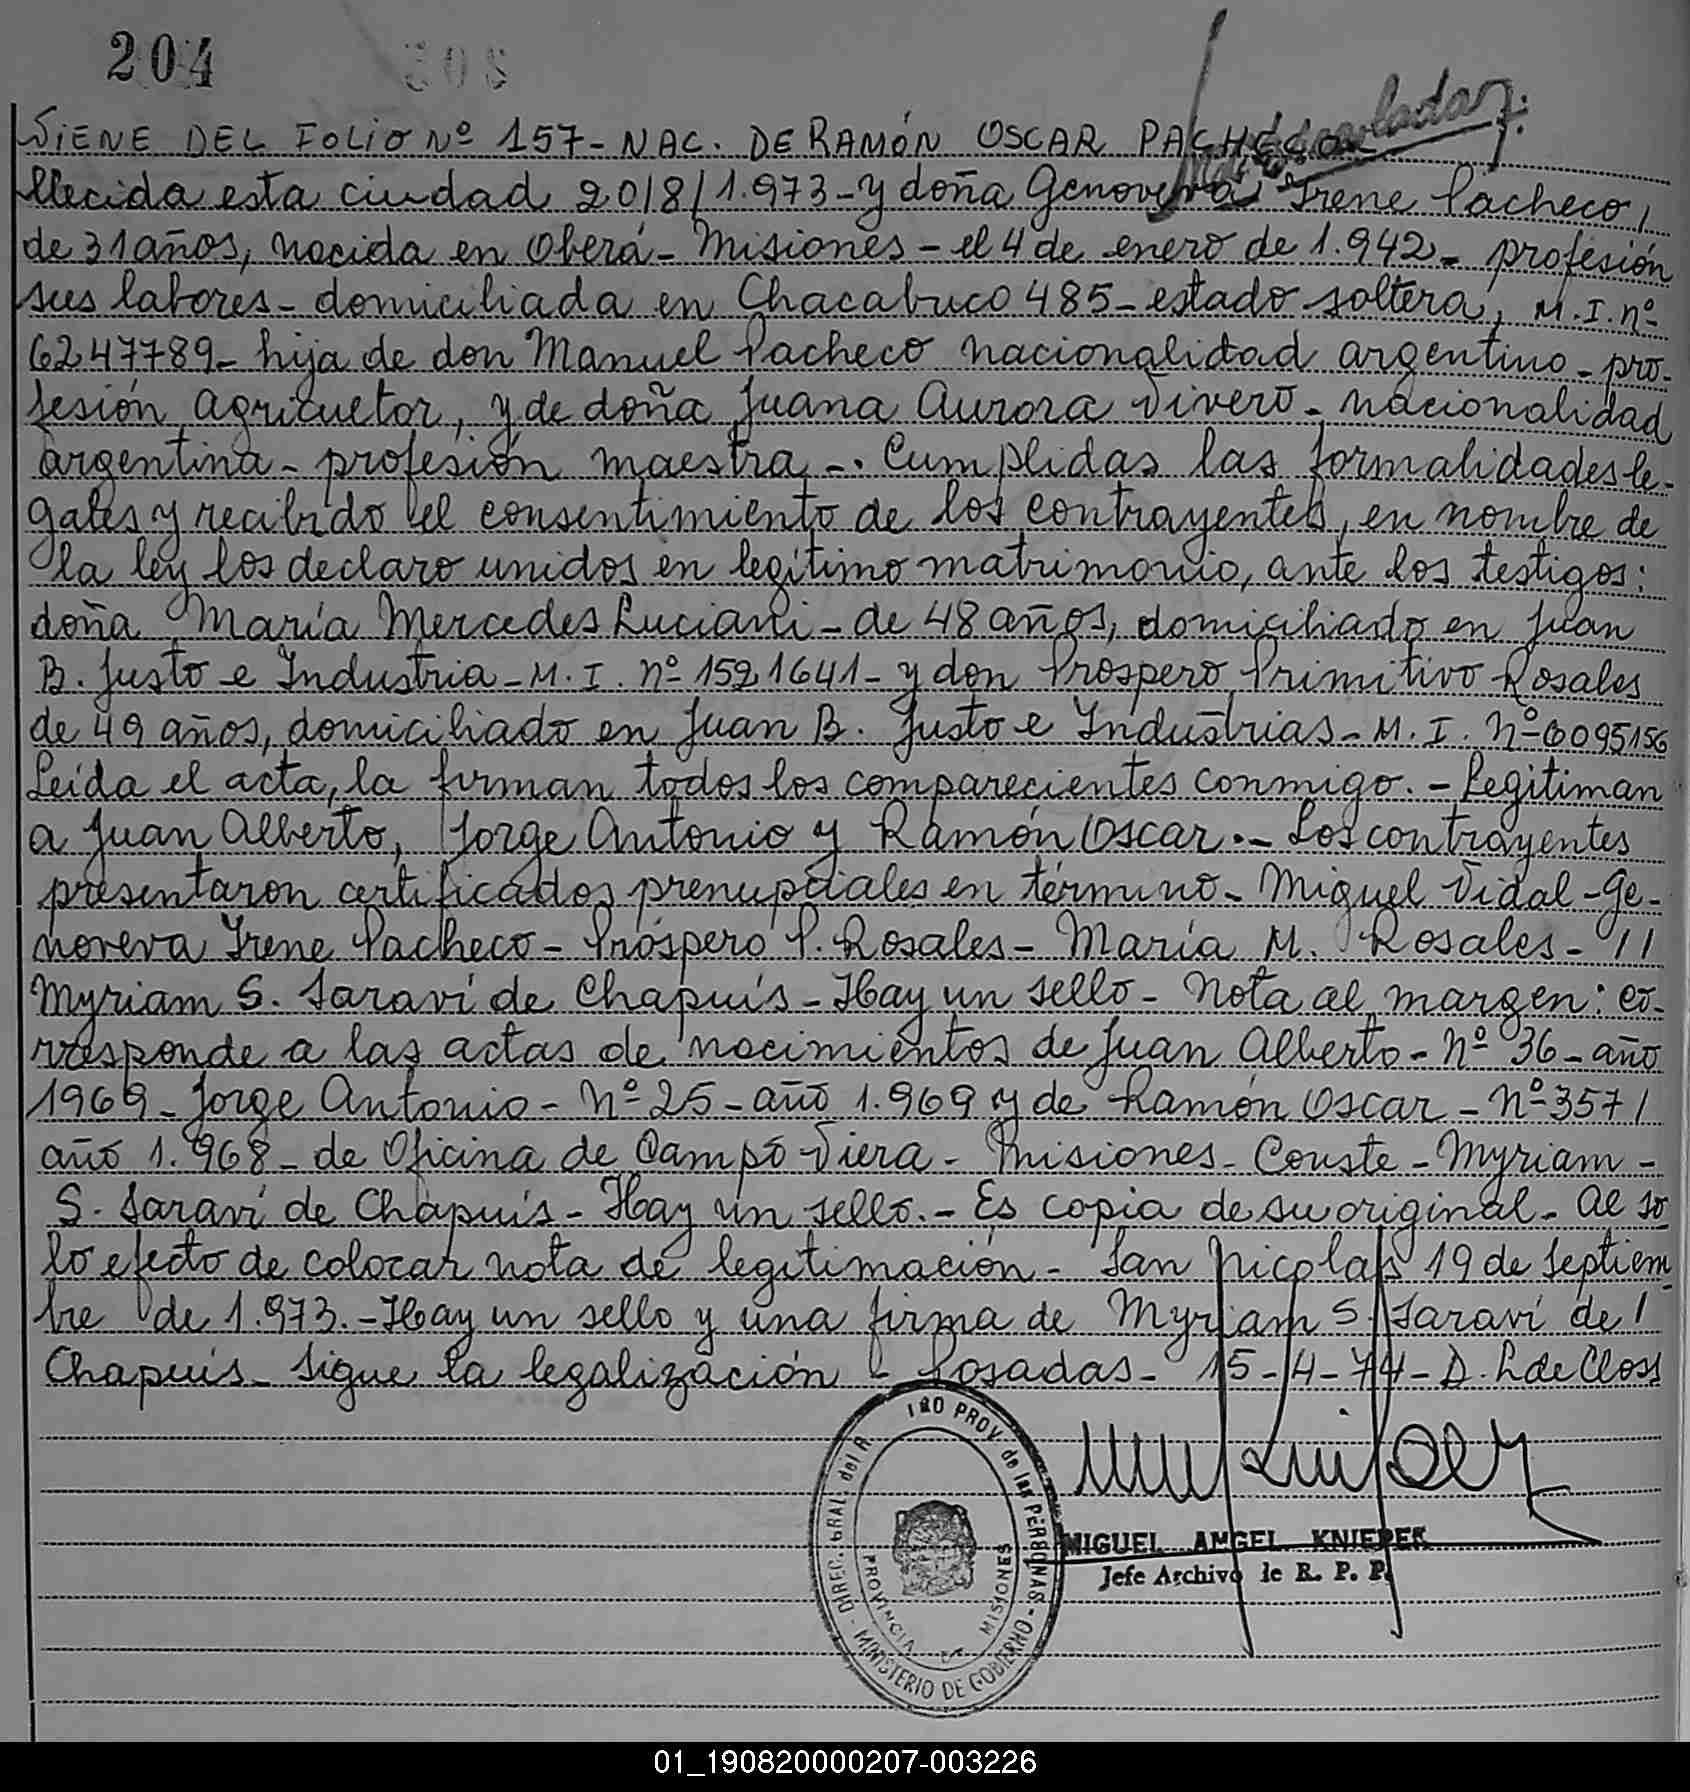 204
VIENE DEL FOLIO Nº 157- NAC. DE RAMÓN OSCAR PACHECO
llecida esta ciudad 20/8/1.973- y doña Genoveva Irene Pacheco/
de 31 años, nacida en Oberá- Misiones- el 4 de enero de 1.942- profesión
sus labores- domiciliada en Chacabuco 485- estado soltera, M.I. nº
6247789- hija de don Manuel Pacheco nacionalidad argentino- pro-
fesión agricultor, y de doña Juana Aurora Vivero- nacionalidad
argentina- profesión maestra-. Cumplidas las formalidades le-
gales y recibido el consentimiento de los contrayentes, en nombre de
la ley los declaro unidos en legítimo matrimonio, ante los testigos:
doña María Mercedes Luciani- de 48 años, domiciliado en Juan
B. Justo e Industria- M. I. nº 1521641- y don Prospero Primitivo Rosales
de 49 años, domiciliado en Juan B. Justo e Industrias- M. I. Nº 6095156
Leída el acta, la firman todos los comparecientes conmigo.- Legitiman
a Juan Alberto, Jorge Antonio y Ramón Oscar.- Los contrayentes
presentaron certificados prenupciales en término- Miguel Vidal- Ge-
noveva Irene Pacheco- Próspero P. Rosales- María M. Rosales- //
Myriam S. Saraví de Chapuis- Hay un sello- Nota al margen: co-
rresponde a las actas de nacimientos de Juan Alberto- nº 36- año
1969- Jorge Antonio- Nº 25- año 1.969 y de Ramón Oscar- Nº 357/
año 1.968- de Oficina de Campo Viera- Misiones- Conste- Myriam-
S. Saraví de Chapuis- Hay un sello.- Es copia de su original- Al so
lo efecto de colocar nota de legitimación- San Nicolás 19 de Septiem-
bre de 1.973.- Hay un sello y una firma de Myriam S. Saraví de/
Chapuis- Sigue la legalización- Posadas- 15-4-74- D. L de Closs
DIREC. GRAL. del R PROV. de las PERSONAS - MINISTERIO DE GOBIERNO
PROVINCIA DE MISIONES
MIGUEL ANGEL KNIEPER
Jefe Archivo de R. P. P.
01_190820000207-003226